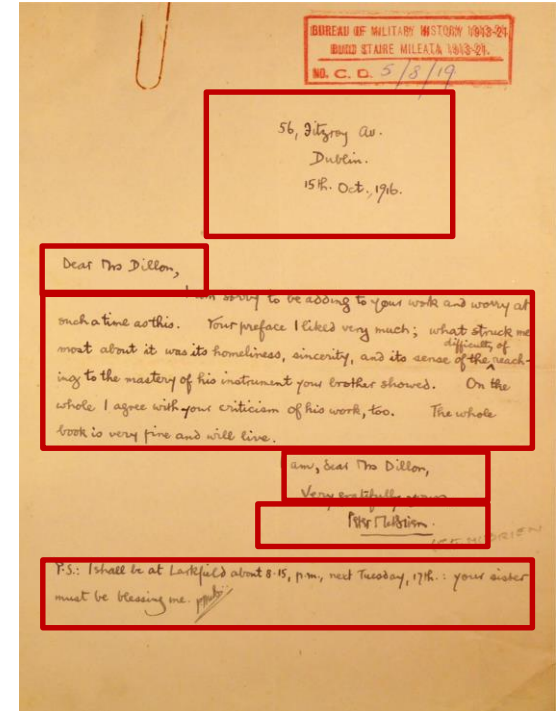 BUREAU OF MILITARY HISTORY 1913-21
BURO STAIRE MILEATA 1913-21
NO. C. D. 5/8/19
56, Fitzroy Av.
Dublin.
15th. Oct., 1916.
Dear Mrs Dillon,
I am sorry to be adding to your work and worry at
such a time as this. Your preface I liked very much; what struck me
most about it was its homeliness, sincerity, and its sense of the difficulty of reach-
ing to the mastery of his instrument your brother showed. On the
whole I agree with your criticism of his work, too. The whole
book is very fine and will live.
I am, dear Mrs Dillon,
Very gratefully yours
Peter McBrien.
McBRIEN
P.S.: I shall be at Larkfield about 8.15, p.m., next Tuesday, 17th.: your sister
must be blessing me.